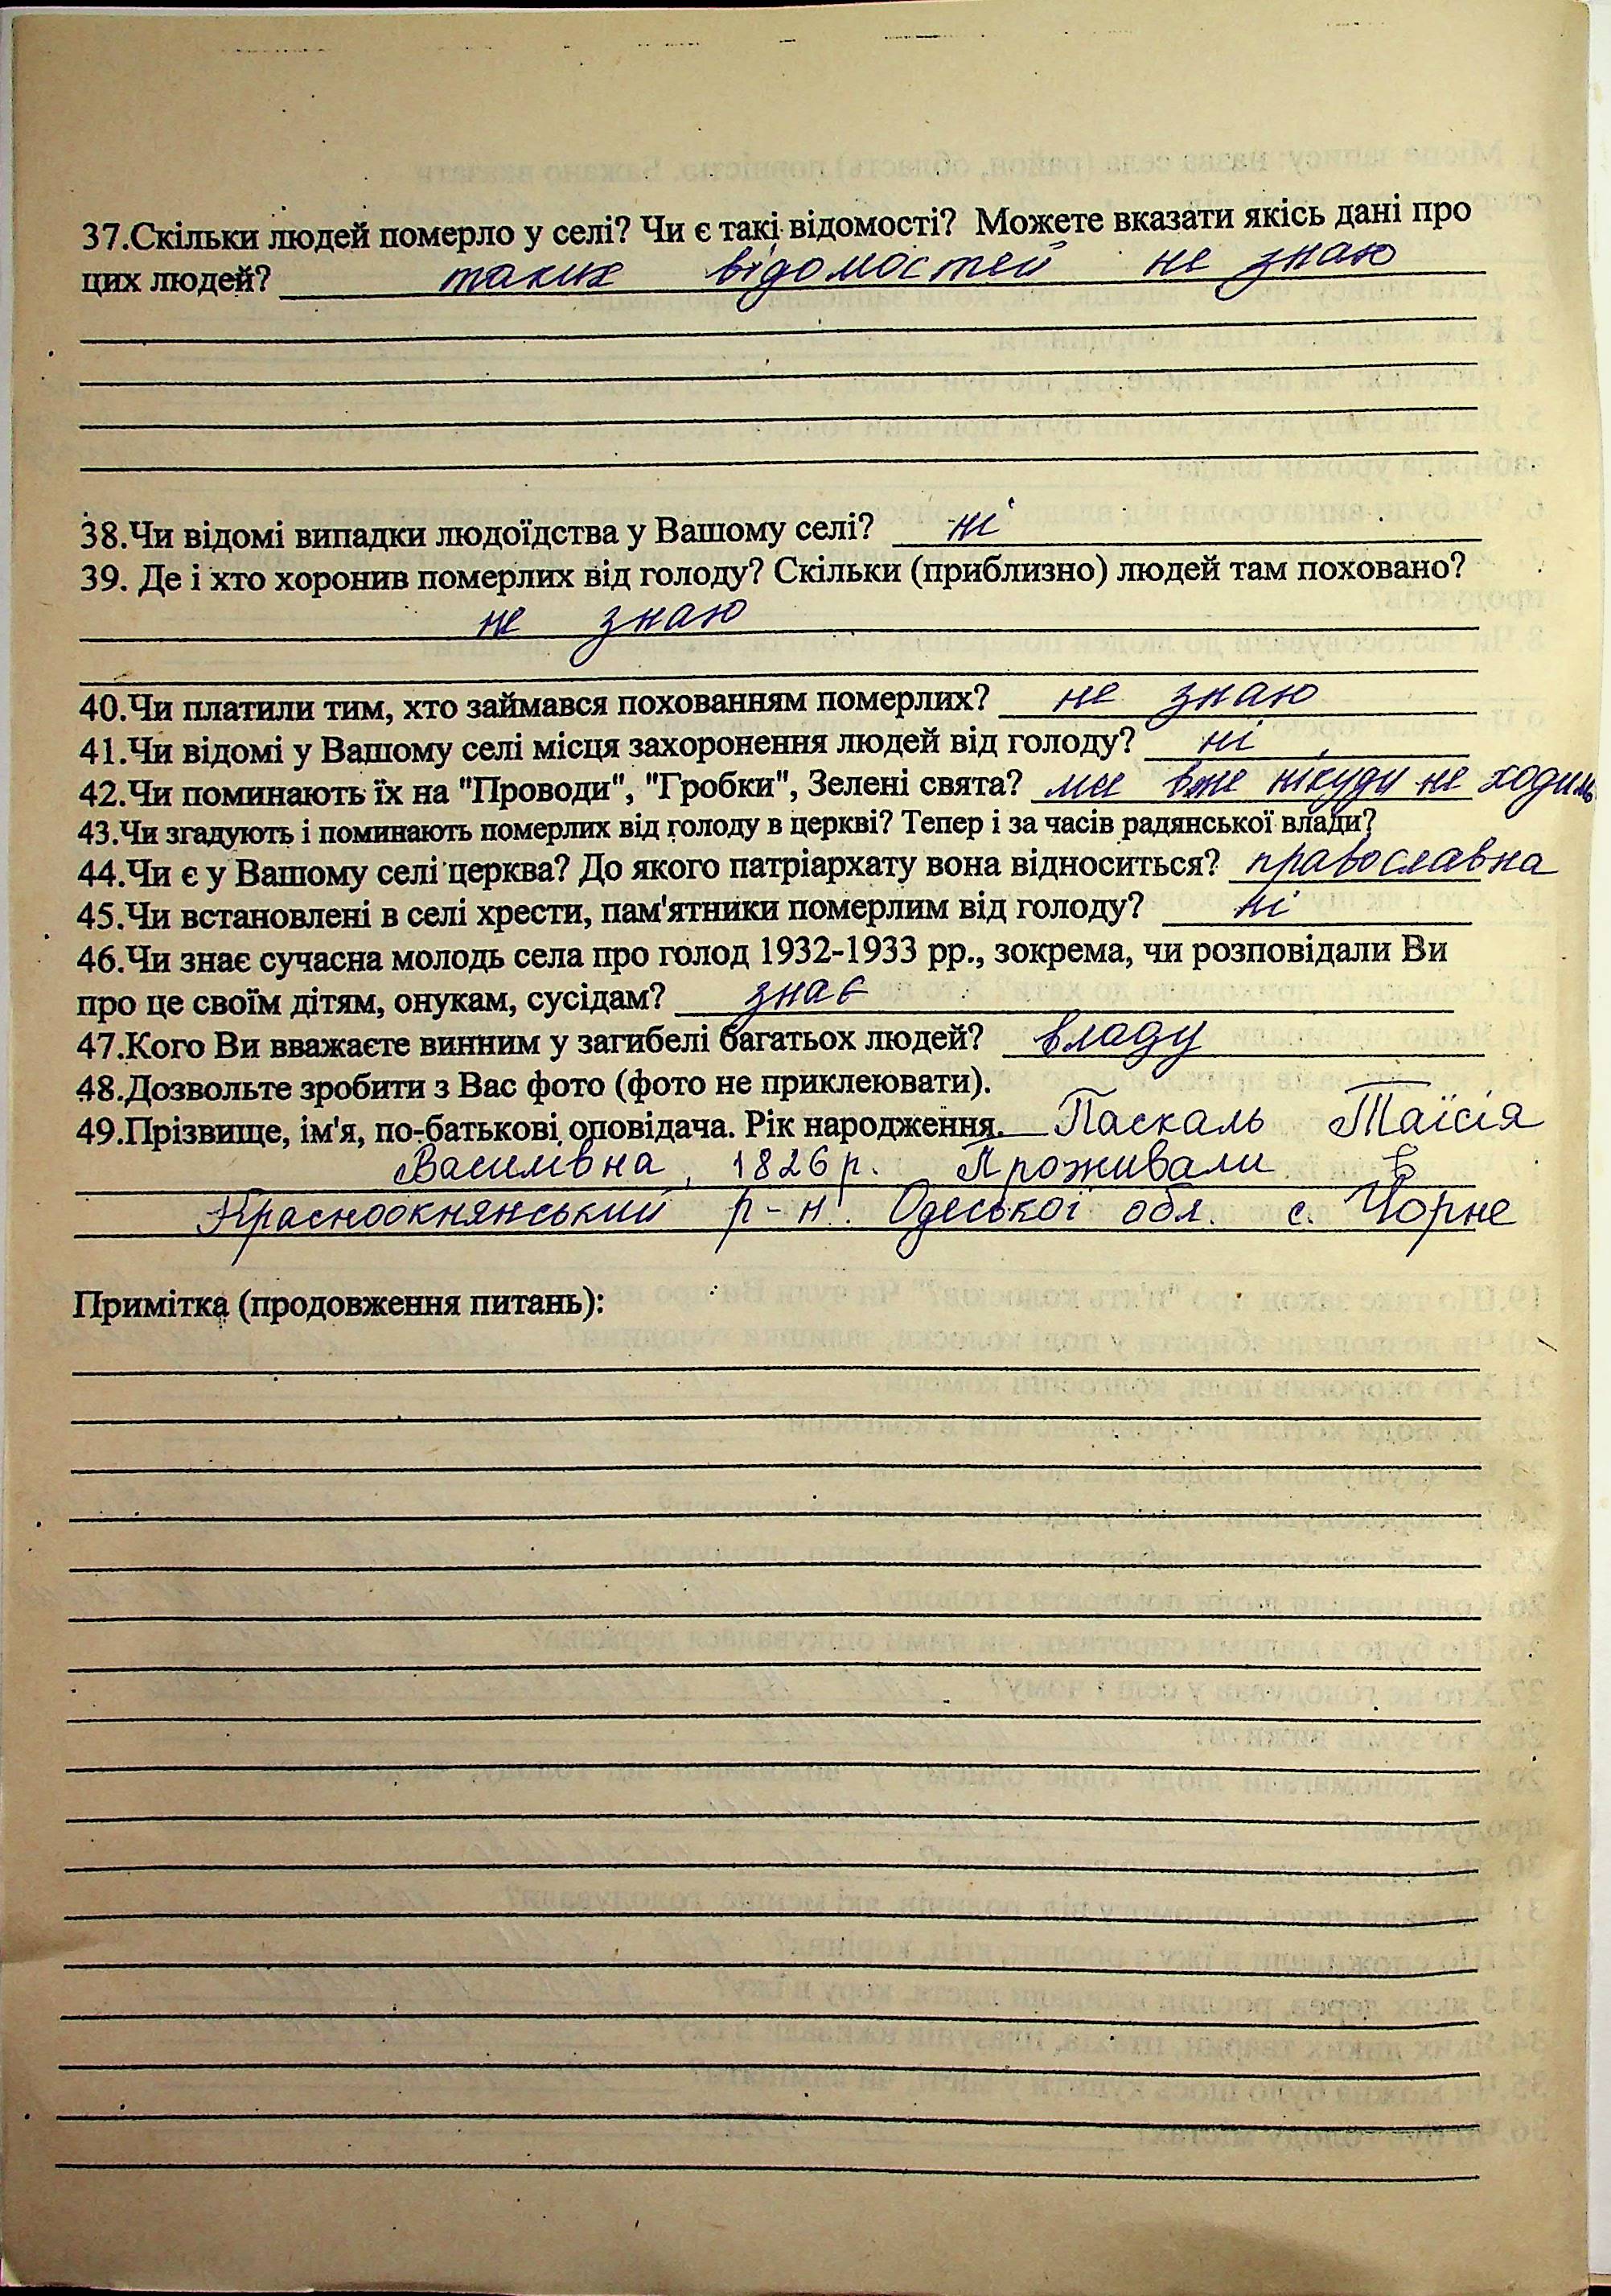 37.Скільки людей померло у селі? Чи є такі відомості? Можете вказати якісь дані про
цих людей? таких відомостей не знаю
38.Чи відомі випадки людоїдства у Вашому селі? ні
39. Де і хто хоронив померлих від голоду? Скільки (приблизно) людей там поховано?
не знаю
40.Чи платили тим, хто займався похованням померлих? не знаю
41.Чи відомі у Вашому селі місця захоронення людей від голоду? ні
42.Чи поминають їх на "Проводи", "Гробки", Зелені свята? ми вже нікуди не ходимо
43.Чи згадують і поминають померлих від голоду в церкві? Тепер і за часів радянської влади?
44.Чи є у Вашому селі церква? До якого патріархату вона відноситься? православна
45.Чи встановлені в селі хрести, пам'ятники померлим від голоду? ні
46.Чи знає сучасна молодь села про голод 1932-1933 рр., зокрема, чи розповідали Ви
про це своїм дітям, онукам, сусідам? знає
47.Кого Ви вважаєте винним у загибелі багатьох людей? владу
48.Дозвольте зробити з Вас фото (фото не приклеювати).
49.Прізвище, ім'я, по-батькові оповідача. Рік народження. Паскаль Таїсія
Василівна, 1826 р. Проживали в
Красноокнянський р-н. Одеської обл. с. Чорне
Примітка (продовження питань):